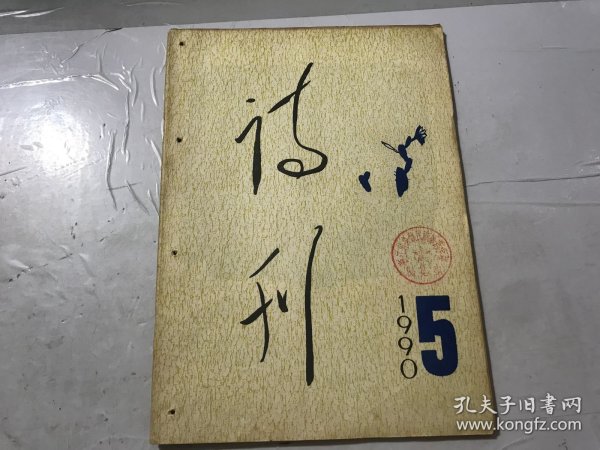 诗刊
1990
5
孔夫子旧书网
www.kongfz.com